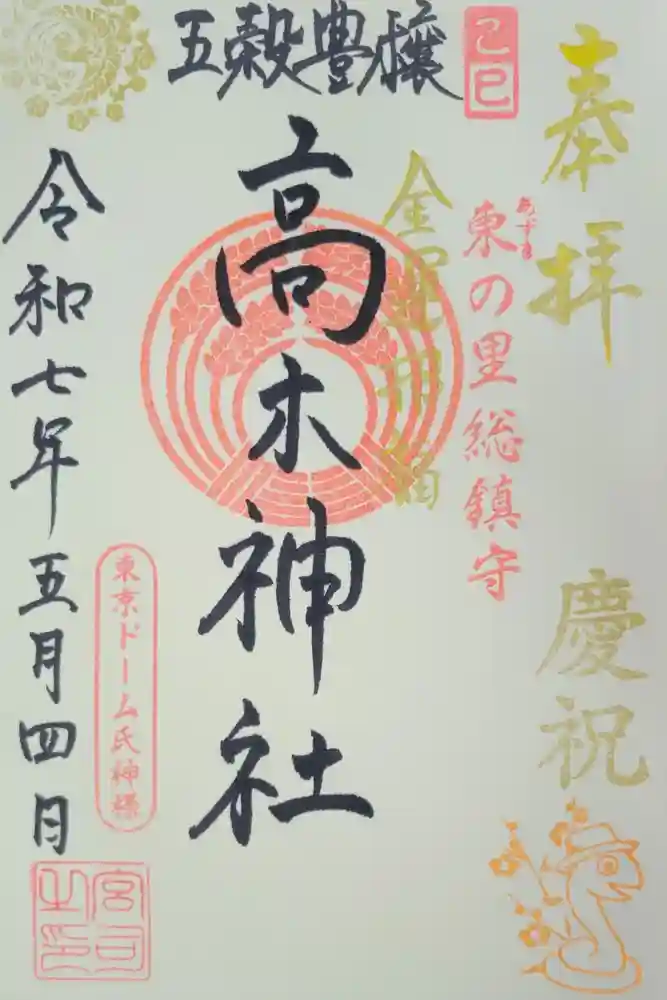 奉拝
慶祝
己巳
あずま
東の里総鎮守
金運招福
五穀豊穣
高木神社
東京ドーム氏神様
令和七年五月四日
宮司之印